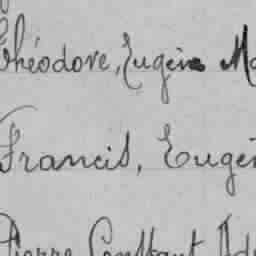 Théodore, Eugène Ma
Francis, Eugèn
Pierre Constant Ad